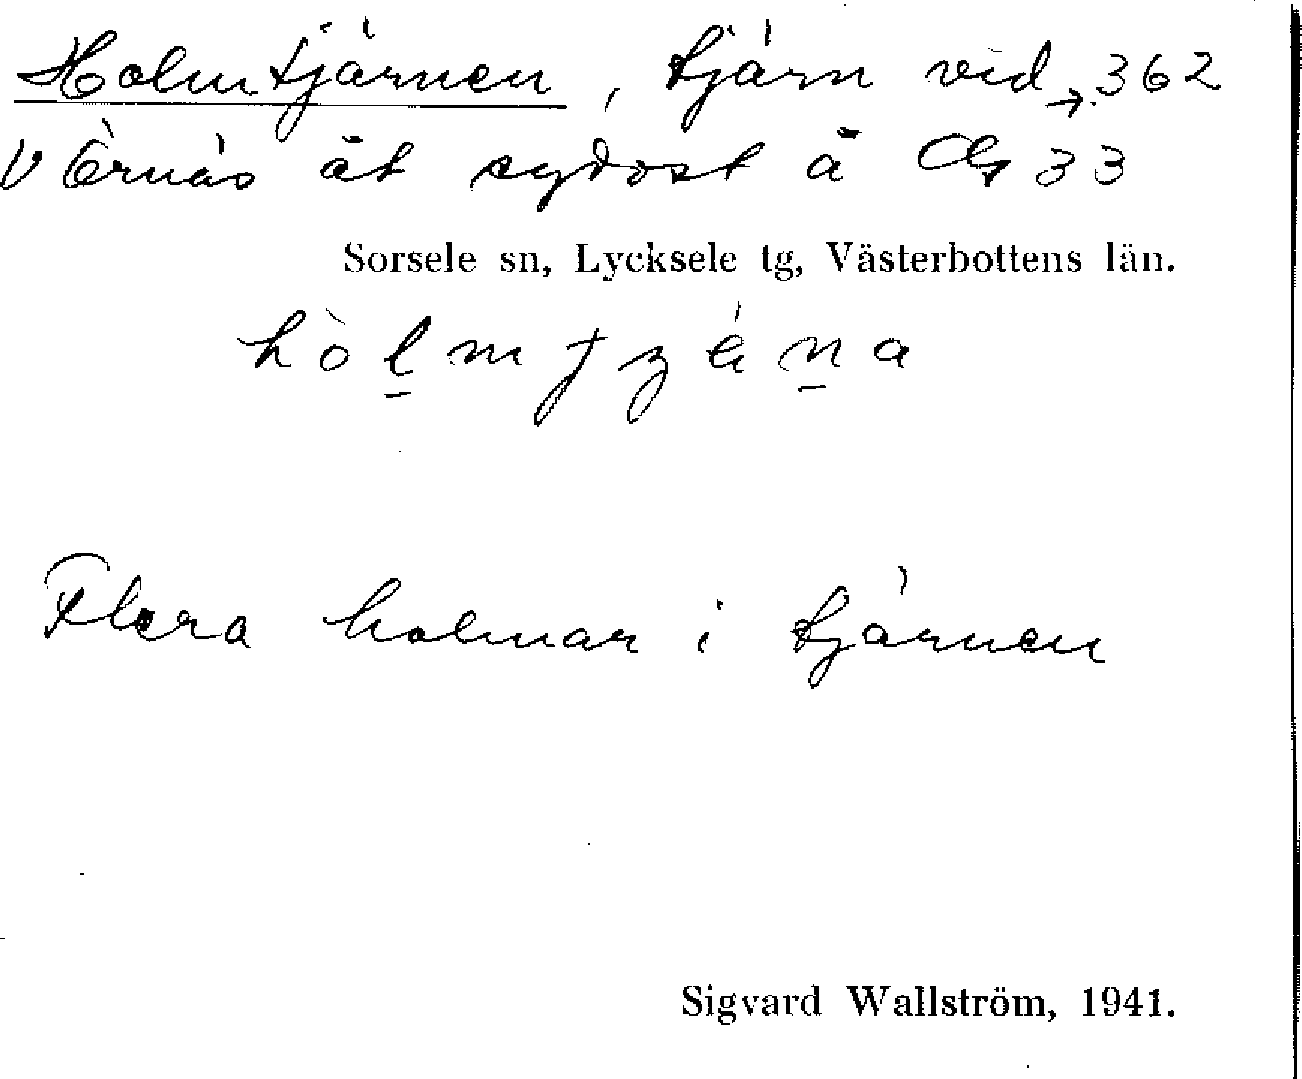 Holmtjärnen, tjärn vid → 362
V Örnäs åt sydost å 33
Sorsele sn, Lycksele tg, Västerbottens län.
Flera holmar i tjärnen
Sigvard Wallström, 1941.